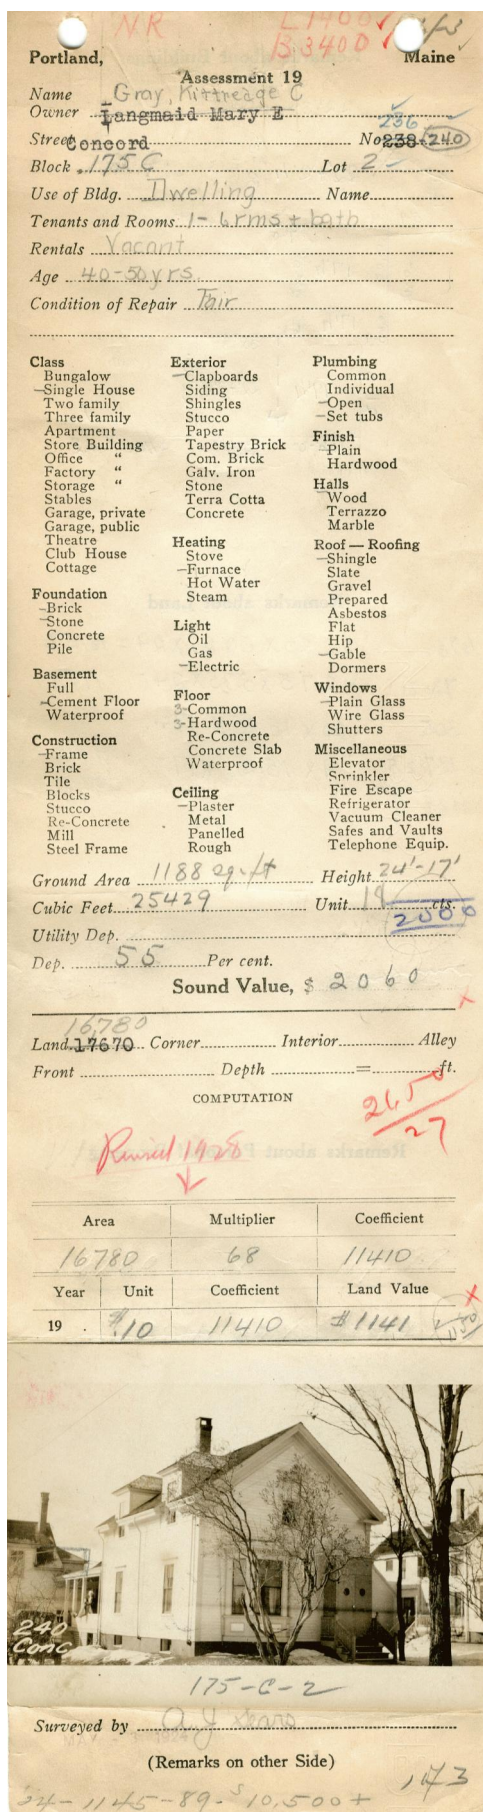 NR L 1400
B 3400
Portland, Maine
Assessment 19
Name Gray, Kittredge C
Owner Langmaid Mary E 236
Street Concord No 238-240
Block 175C Lot 2
Use of Bldg. Dwelling Name
Tenants and Rooms 1- 6 rms + bath
Rentals Vacant
Age 40-50 yrs.
Condition of Repair Fair
Class
Bungalow
Single House
Two family
Three family
Apartment
Store Building
Office "
Factory "
Storage "
Stables
Garage, private
Garage, public
Theatre
Club House
Cottage
Foundation
Brick
Stone
Concrete
Pile
Basement
Full
Cement Floor
Waterproof
Construction
Frame
Brick
Tile
Blocks
Stucco
Re-Concrete
Mill
Steel Frame
Exterior
Clapboards
Siding
Shingles
Stucco
Paper
Tapestry Brick
Com. Brick
Galv. Iron
Stone
Terra Cotta
Concrete
Heating
Stove
Furnace
Hot Water
Steam
Light
Oil
Gas
Electric
Floor
3-Common
3-Hardwood
Re-Concrete
Concrete Slab
Waterproof
Ceiling
Plaster
Metal
Panelled
Rough
Plumbing
Common
Individual
Open
Set tubs
Finish
Plain
Hardwood
Halls
Wood
Terrazzo
Marble
Roof — Roofing
Shingle
Slate
Gravel
Prepared
Asbestos
Flat
Hip
Gable
Dormers
Windows
Plain Glass
Wire Glass
Shutters
Miscellaneous
Elevator
Sprinkler
Fire Escape
Refrigerator
Vacuum Cleaner
Safes and Vaults
Telephone Equip.
Ground Area 1188 sq. ft Height 24'-17'
Cubic Feet 25429 Unit 18 cts.
Utility Dep. 2500
Dep. 55 Per cent.
Sound Value, $ 2060
16,780
Land 17670 Corner Interior Alley
Front Depth = ft.
COMPUTATION
2650
27
Revised 1928
Area Multiplier Coefficient
16780 68 11410
Year Unit Coefficient Land Value
19 . $.10 11410 $1141
240
Conc
175-C-2
Surveyed by A J Sears
(Remarks on other Side)
173
24-1145-89-S 10,500+